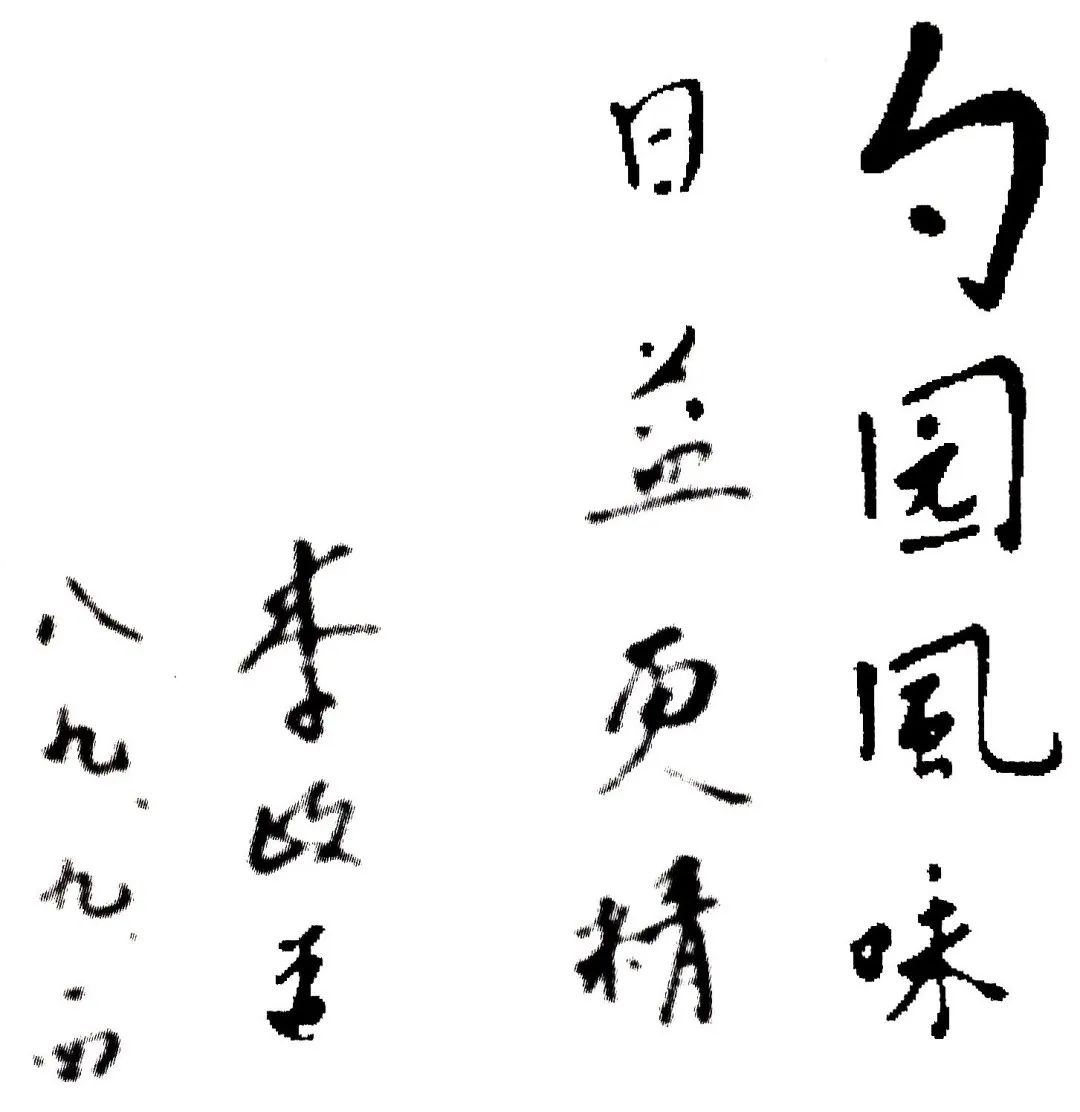 勺园風味
日益更精
李政道
八九.九.